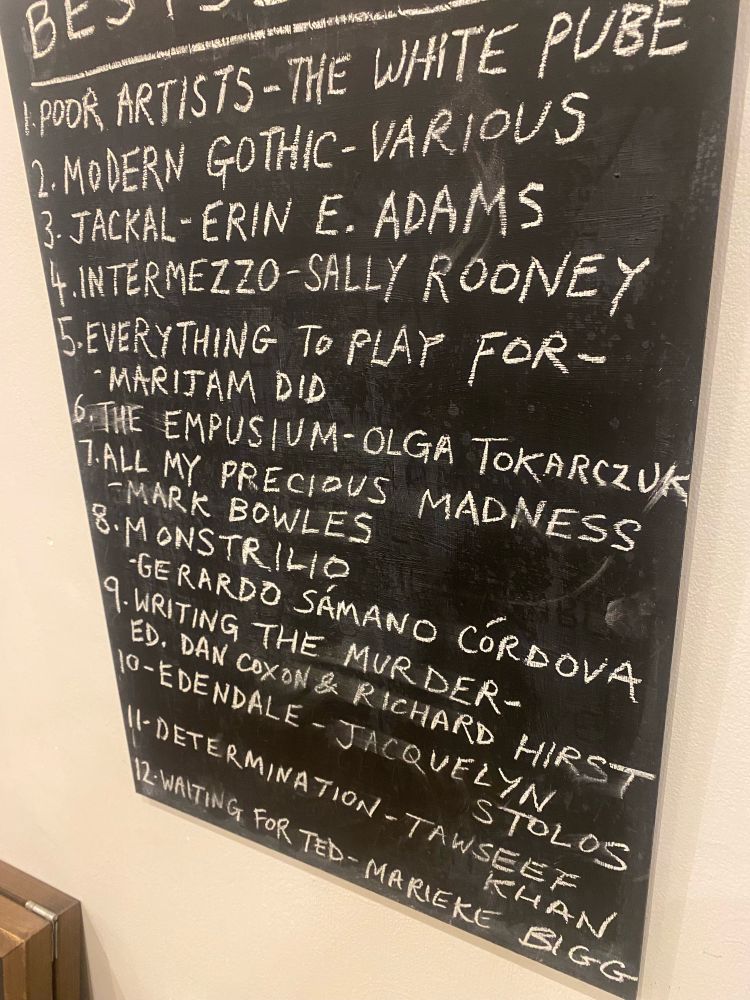 1. POOR ARTISTS - THE WHITE PUBE
2. MODERN GOTHIC - VARIOUS
3. JACKAL - ERIN E. ADAMS
4. INTERMEZZO - SALLY ROONEY
5. EVERYTHING TO PLAY FOR -
- MARIJAM DID
6. THE EMPUSIUM - OLGA TOKARCZUK
7. ALL MY PRECIOUS MADNESS
- MARK BOWLES
8. MONSTRILIO
- GERARDO SÁMANO CÓRDOVA
9. WRITING THE MURDER -
ED. DAN COXON & RICHARD HIRST
10 - EDENDALE - JACQUELYN
STOLOS
11 - DETERMINATION - TAWSEEF
KHAN
12. WAITING FOR TED - MARIEKE BIGG